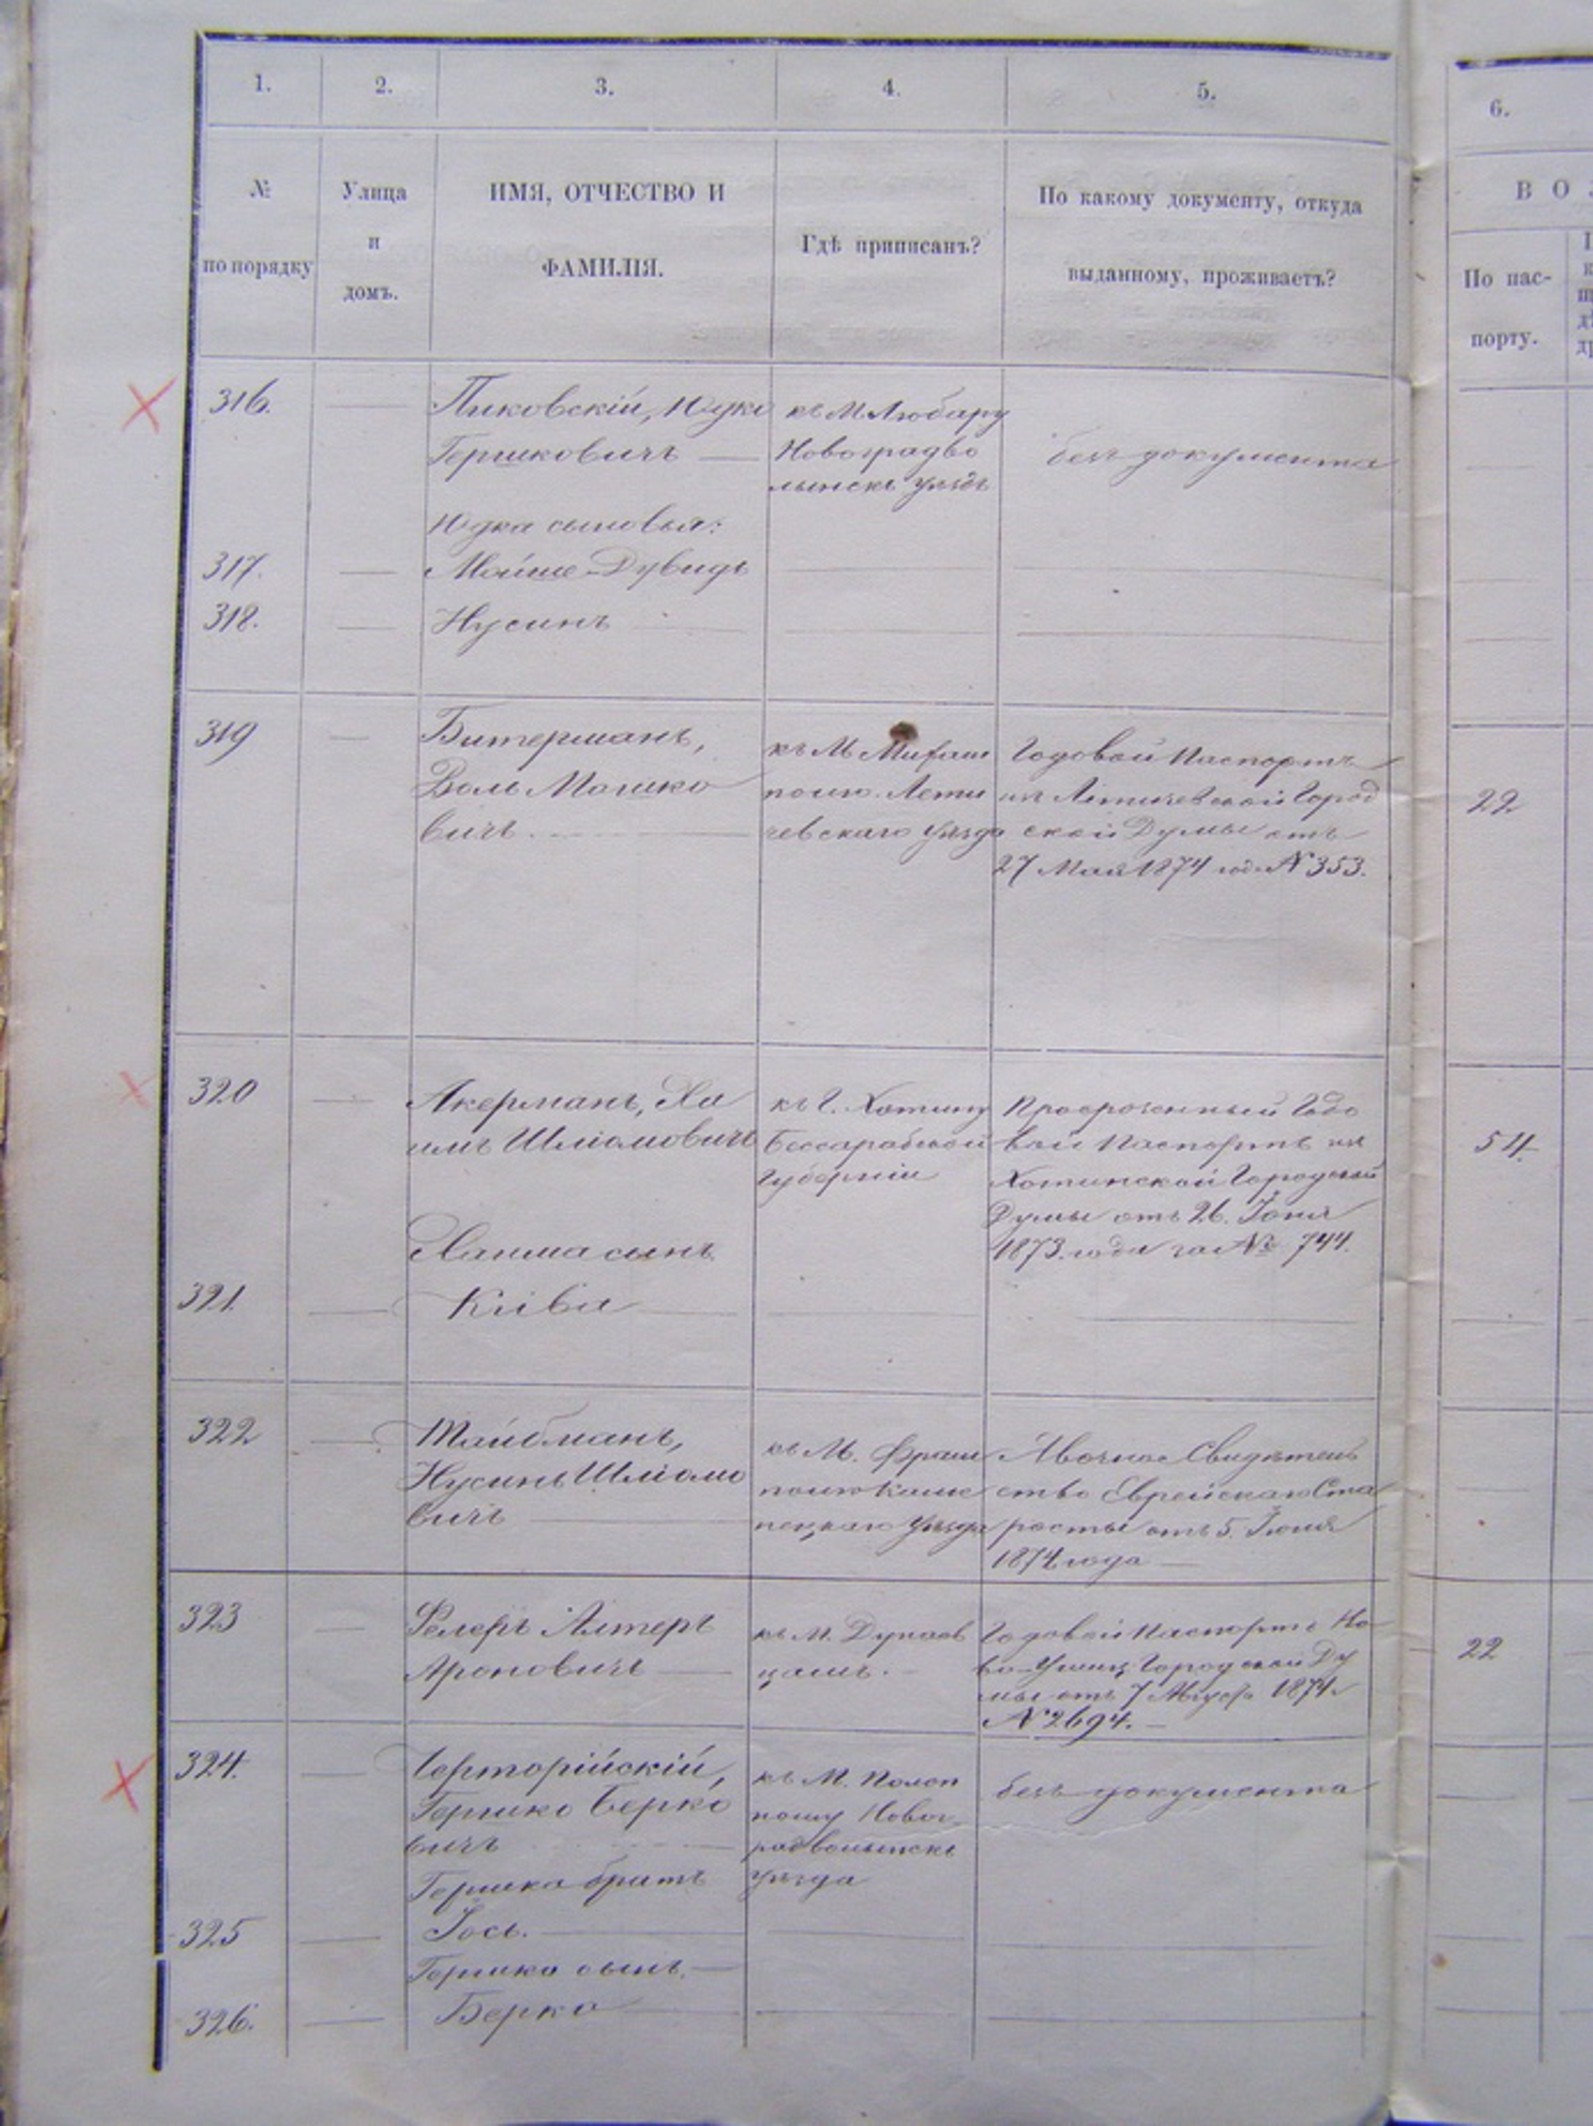 1. 2. 3. 4. 5. 6.
№ по порядку
Улица и домъ.
ИМЯ, ОТЧЕСТВО И ФАМИЛІЯ.
Гдѣ приписанъ?
По какому документу, откуда выданному, проживаетъ?
В О
По пас-
порту.
316.
Пиковскій, Юдко
Гершковичъ
къ М Любару
Новоградво
лынскъ уѣзда
безъ документа
Юдка сыновья:
317. Мойше-Дувидъ
318. Нусинъ
319
Битерманъ,
Волъ Мошко
вичъ.
къ М
полю. Лети
чевскаго уѣзда
Годовой Паспортъ
изъ Летичевской Город
ской Думы отъ
27 Мая 1874 год. № 353.
22
320
Акерманъ, Ха
имъ Шліомовичъ
къ Г. Хотину
Бессарабской
Губерніи
Просроченный Годо
вой Паспортъ изъ
Хотинской Городской
Думы отъ 26. Іюня
1873. года за № 744.
54.
Хаима сынъ
321. Кива
322
Тайбманъ,
Нусинъ Шліомо
вичъ
къ М. Фрам
полю Каме
нецкаго уѣзда
Явочное Свидѣтель
ство Еврейскаго Ста
росты отъ 5. Іюня
1874 года
323
Фелеръ Алтеръ
Ароновичъ
къ м. Дунаев
цамъ.
Годовой Паспортъ Но-
во-Ушиц. Городской Ду
мы отъ 7 Августа 1874.
№ 2694.
22
324.
Черторійскій,
Гершко Берко
вичъ
къ М. Полон
ному Новог
радволынскъ
уѣзда
безъ документа
Гершка братъ
325 Іось.
Гершка сынъ.
326. Берко